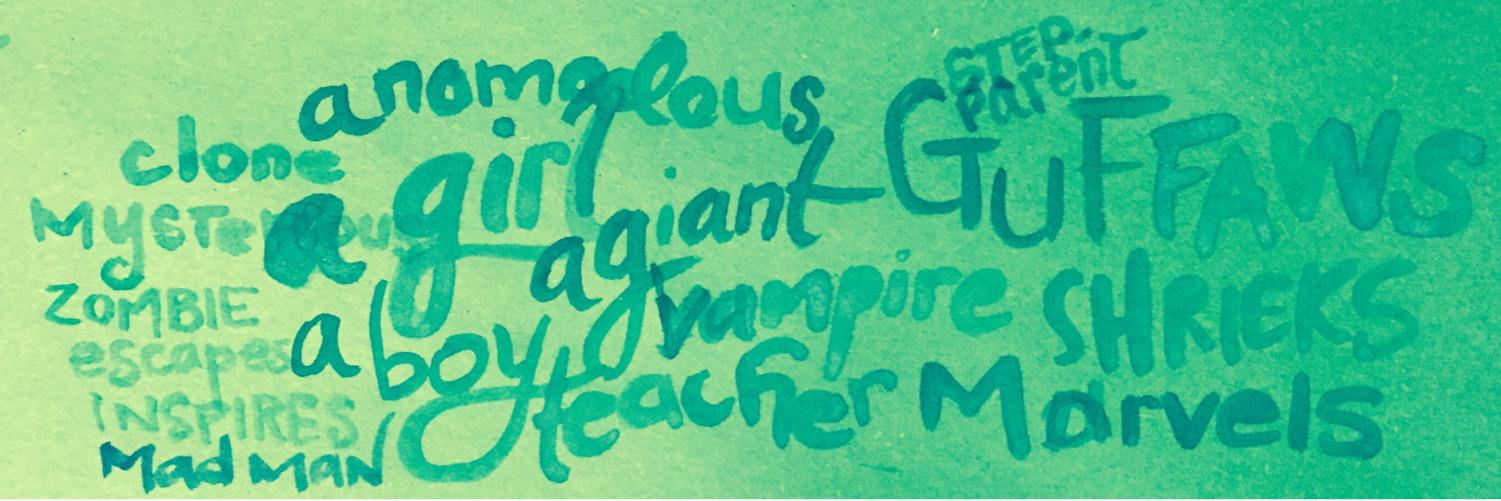 STEP-
parent
anomolous
GUFFAWS
clone
a girl
a giant
Mysterious
vampire SHRIEKS
ZOMBIE
a boy
escapes
teacher Marvels
INSPIRES
Mad MAN